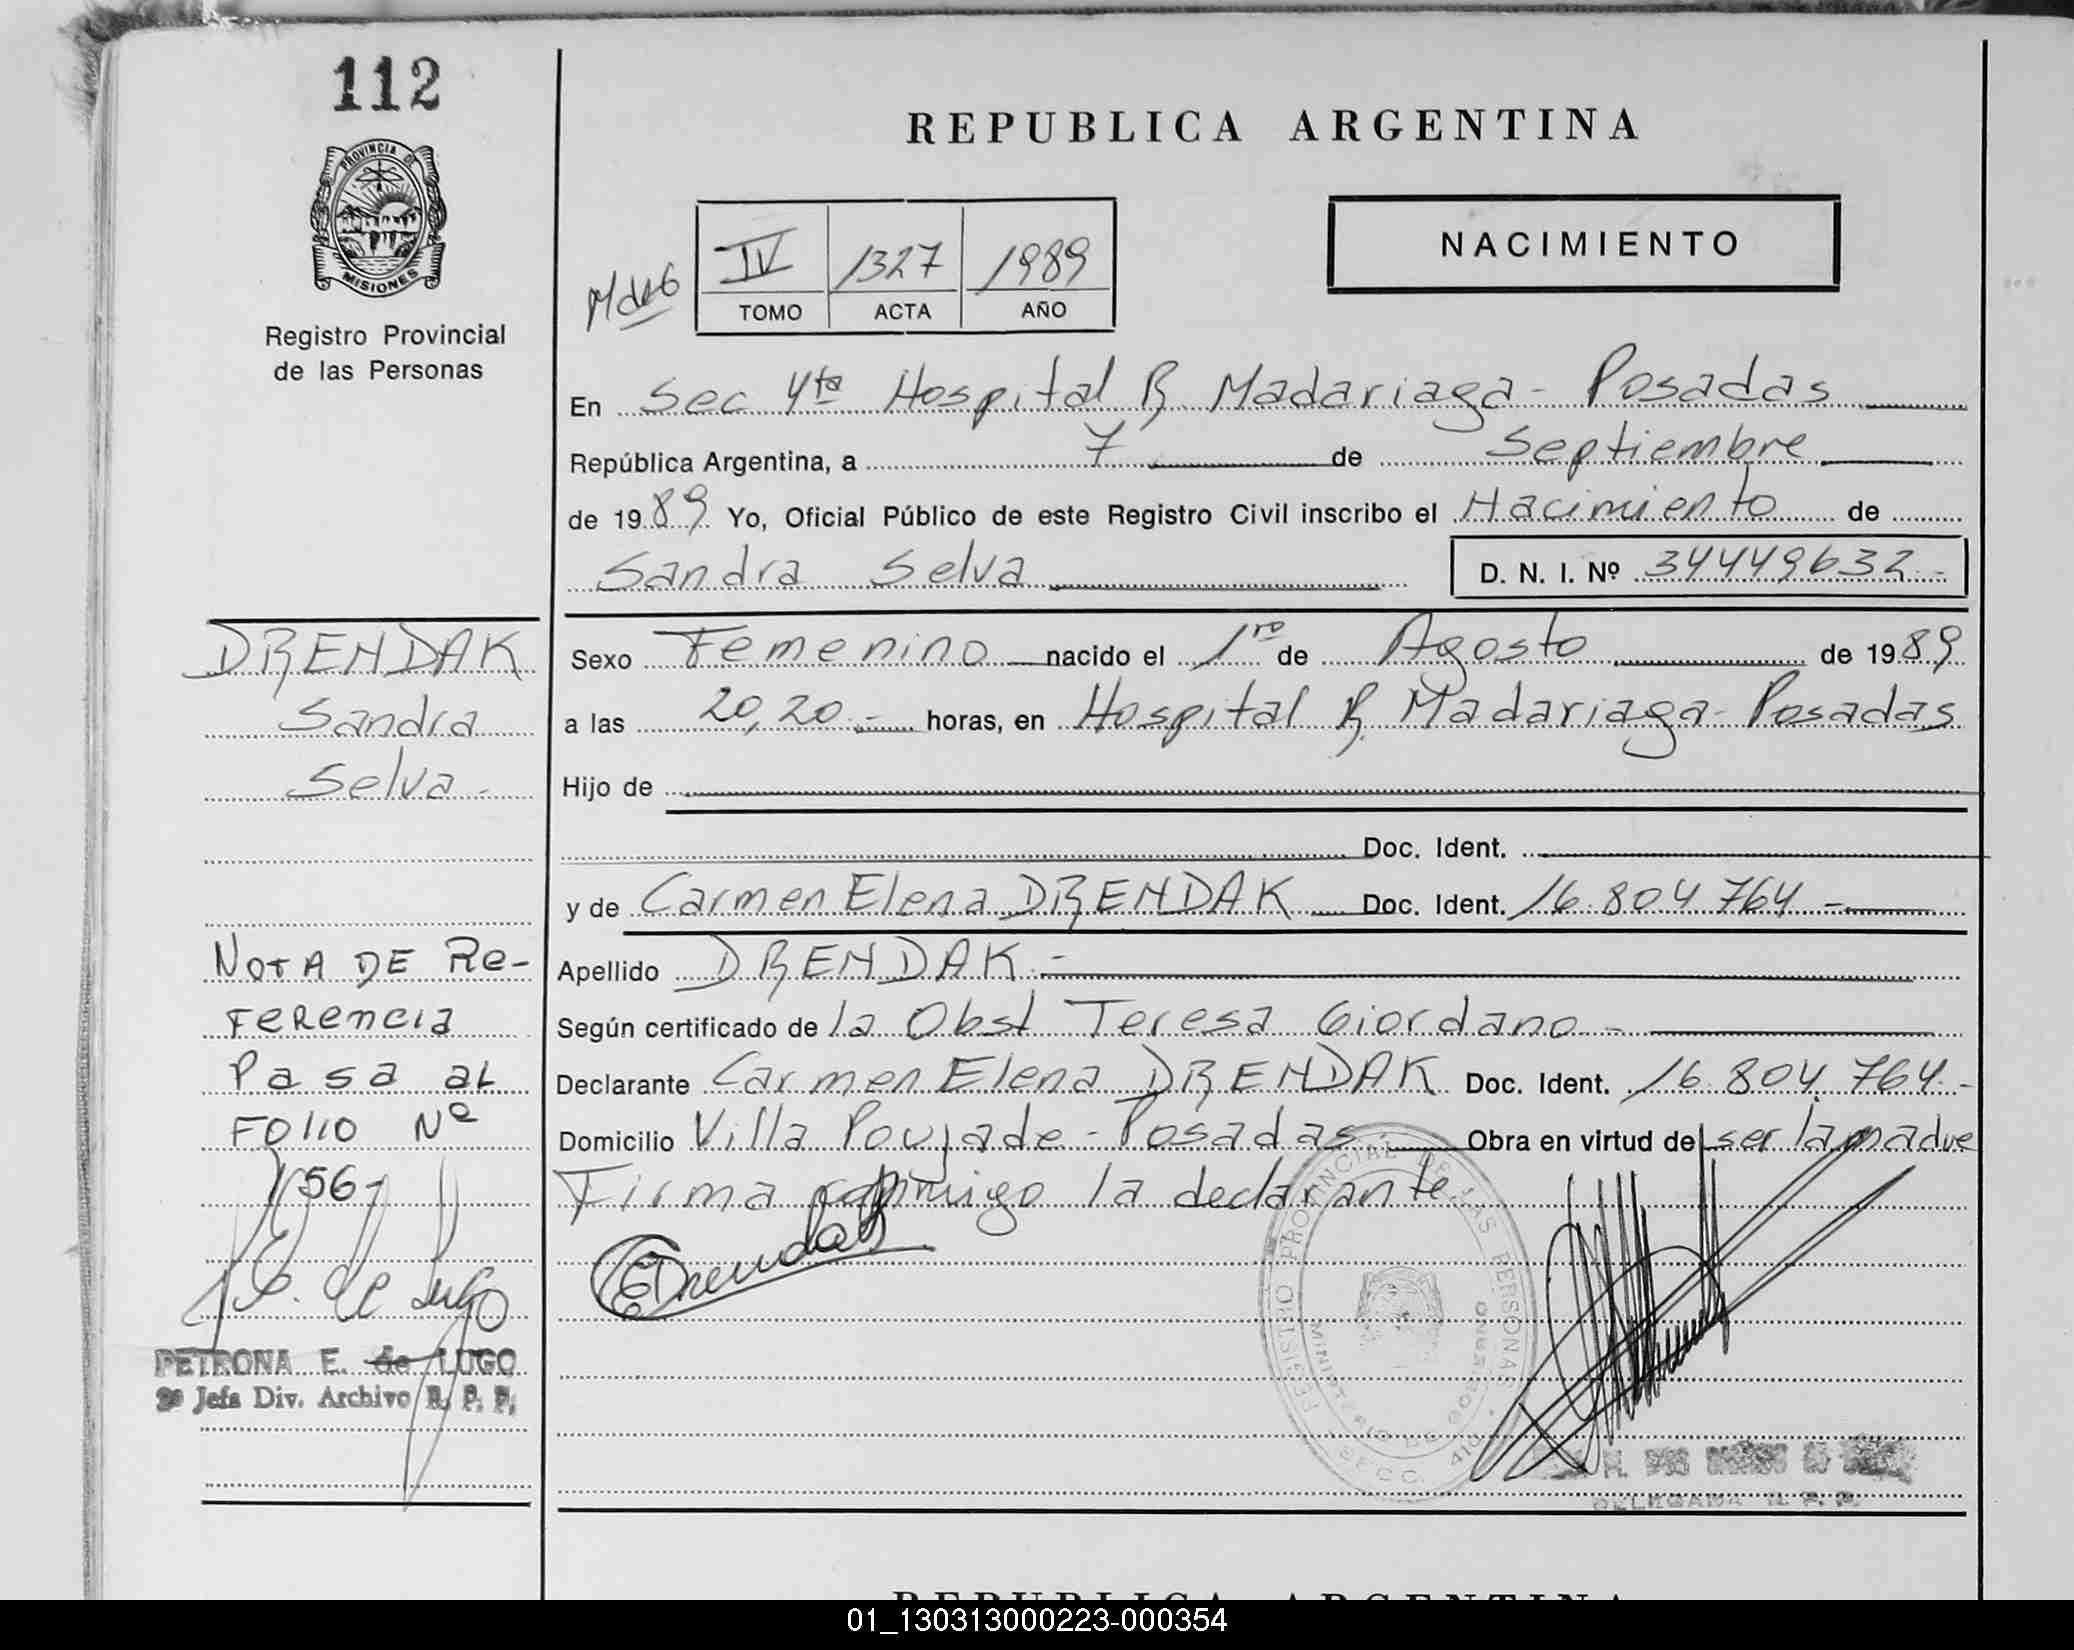 112
PROVINCIA DE
MISIONES
Registro Provincial
de las Personas
REPUBLICA ARGENTINA
NACIMIENTO
IV 1327 1989
TOMO ACTA AÑO
En Sec 4ta Hospital R Madariaga - Posadas
República Argentina, a 7 de Septiembre
de 1989 Yo, Oficial Público de este Registro Civil inscribo el Nacimiento de
Sandra Selva D. N. I. Nº 34449632 -
DRENDAK
Sandra
Selva -
Sexo Femenino nacido el 1ro de Agosto de 1989
a las 20,20 - horas, en Hospital R Madariaga - Posadas
Hijo de
Doc. Ident.
y de Carmen Elena DRENDAK Doc. Ident. 16.804.764 -
Apellido DRENDAK -
Según certificado de la Obst Teresa Giordano -
Declarante Carmen Elena DRENDAK Doc. Ident. 16.804.764 -
Domicilio Villa Poujade - Posadas - Obra en virtud de ser la madre
Firma conmigo la declarante
EDrendak
NOTA DE Re-
Ferencia
Pasa al
FOLIO Nº
156-
P. E. de Lugo
PETRONA E. de LUGO
2º Jefa Div. Archivo R. P. P.
REGISTRO PROVINCIAL DE LAS PERSONAS
MINISTERIO DE GOBIERNO
DELEGADA R. P. P.
REPUBLICA ARGENTINA
01_130313000223-000354